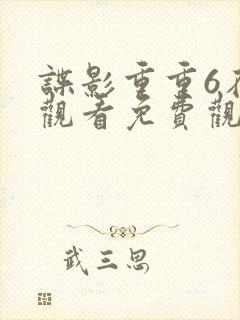 諜影重重6
觀看免費觀
武三思